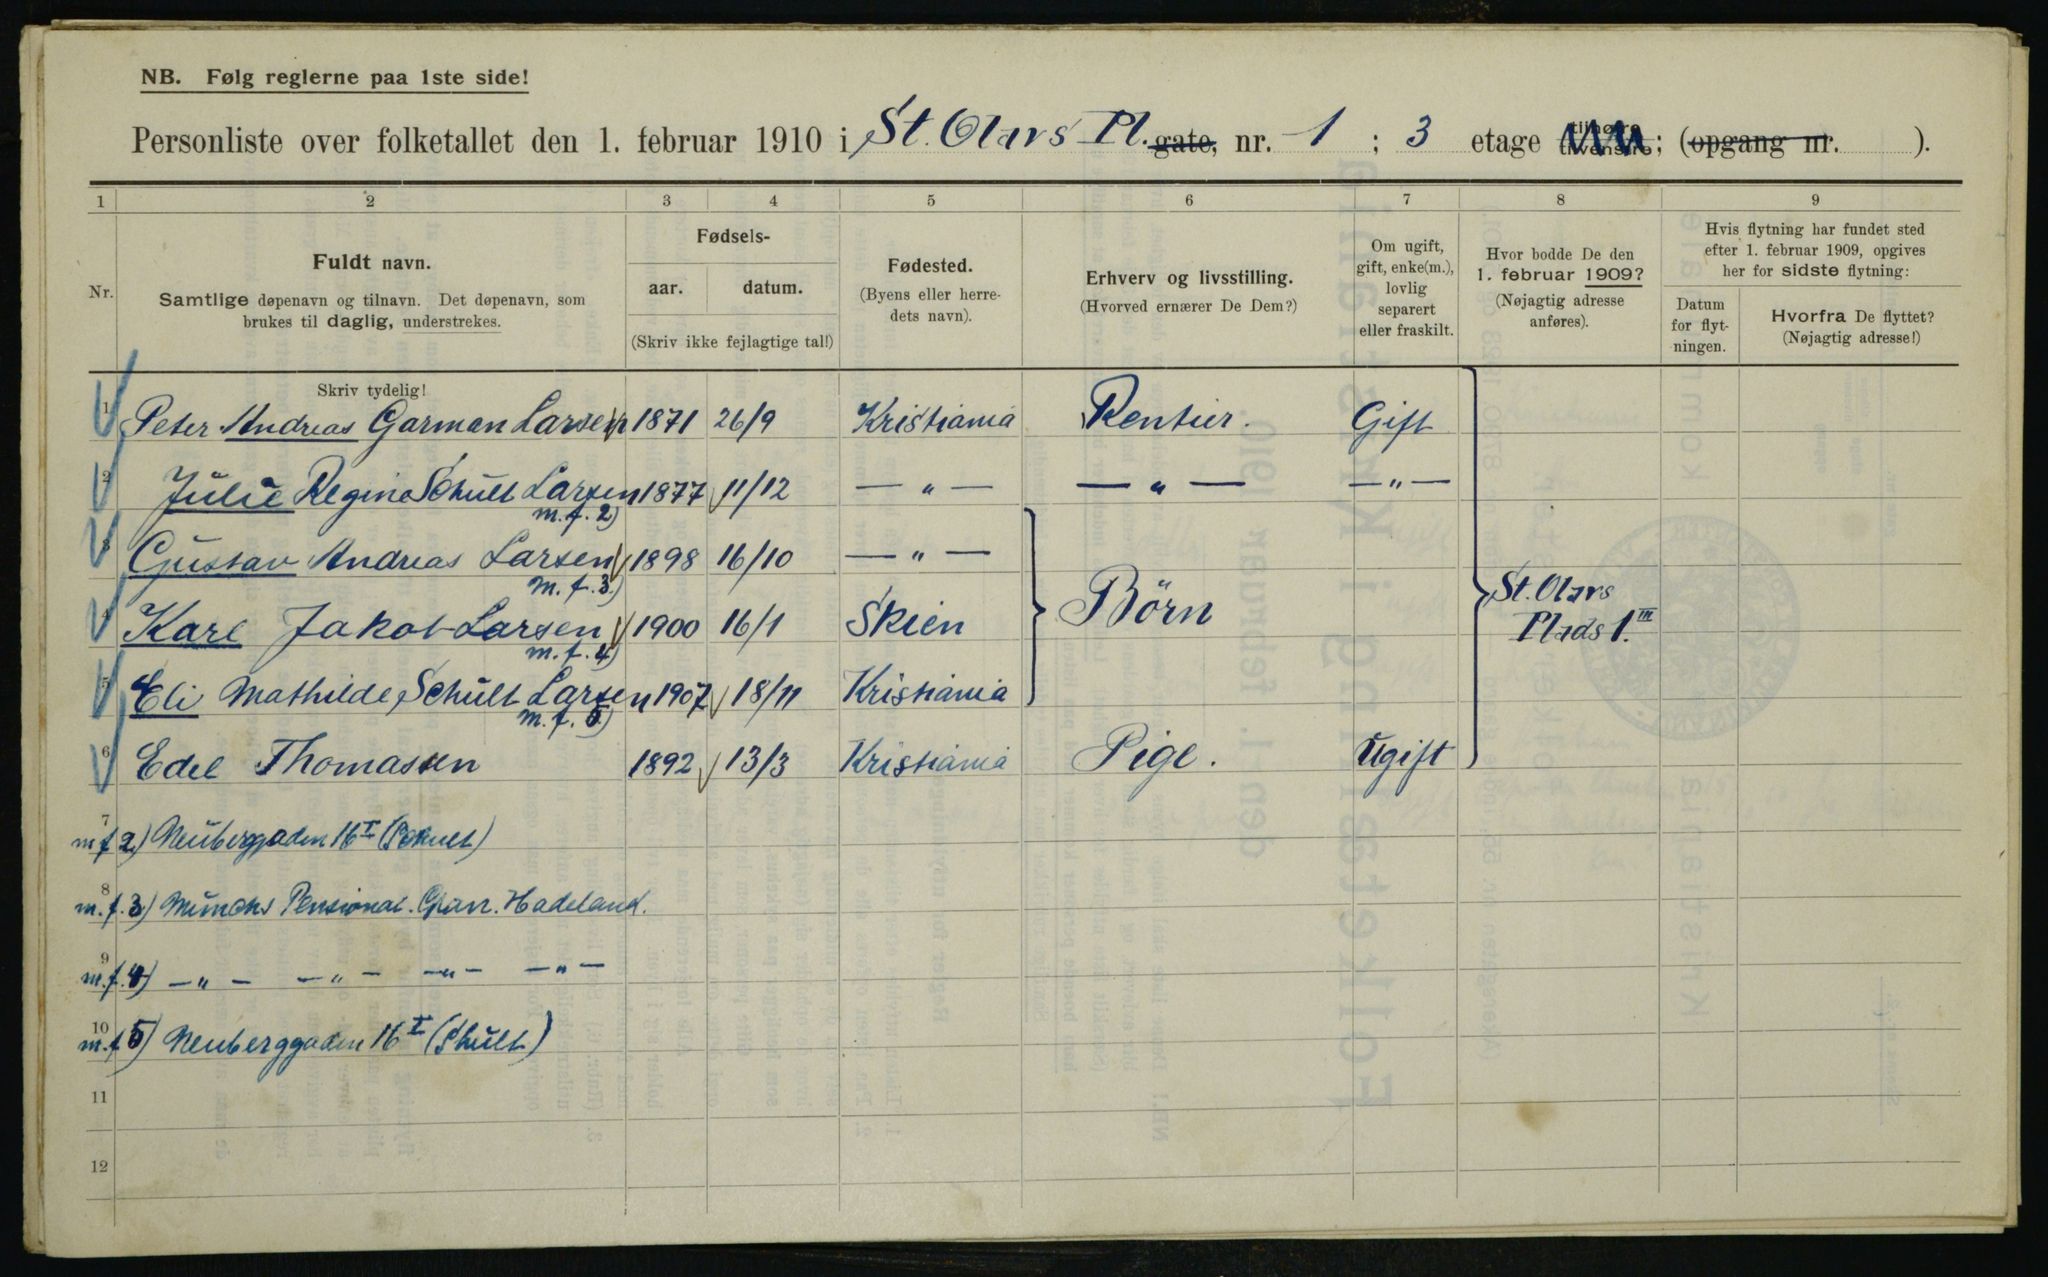 NB. Følg reglerne paa 1ste side!
Personliste over folketallet den 1. februar 1910 i St. Olavs Pl. gate, nr. 1 ; 3 etage tilhøire tilvenstre; (opgang nr. ).
1 2 3 4 5 6 7 8 9
Nr.
Fuldt navn.
Samtlige døpenavn og tilnavn. Det døpenavn, som
brukes til daglig, understrekes.
Fødsels-
aar. datum.
(Skriv ikke fejlagtige tal!)
Fødested.
(Byens eller herre-
dets navn).
Erhverv og livsstilling.
(Hvorved ernærer De Dem?)
Om ugift,
gift, enke(m.),
lovlig
separert
eller fraskilt.
Hvor bodde De den
1. februar 1909?
(Nøjagtig adresse
anføres).
Hvis flytning har fundet sted
efter 1. februar 1909, opgives
her for sidste flytning:
Datum
for flyt-
ningen.
Hvorfra De flyttet?
(Nøjagtig adresse!)
Skriv tydelig!
1 Peter Andreas Garman Larsen 1871 26/9 Kristiania Rentier. Gift
2 Julie Regine Schult Larsen 1877 11/12 — " — — " — — " —
m.f. 2)
3 Gustav Andreas Larsen 1898 16/10 — " —
m.f. 3)
Børn
St. Olavs
Plads 1. III
4 Karl Jakob Larsen 1900 16/1 Skien
m.f. 4)
5 Eli Mathilde Schult Larsen 1907 18/11 Kristiania
m.f. 5)
6 Edel Thomassen 1892 13/3 Kristiania Pige. Ugift
7 m f 2) Neuberggaden 16 I (Schult)
8 m.f. 3) Munchs Pensionat. Gran. Hadeland.
9 m.f. 4) — " — — " — — " — — " —
10 m.f 5) Neuberggaden 16 I (Schult)
11
12